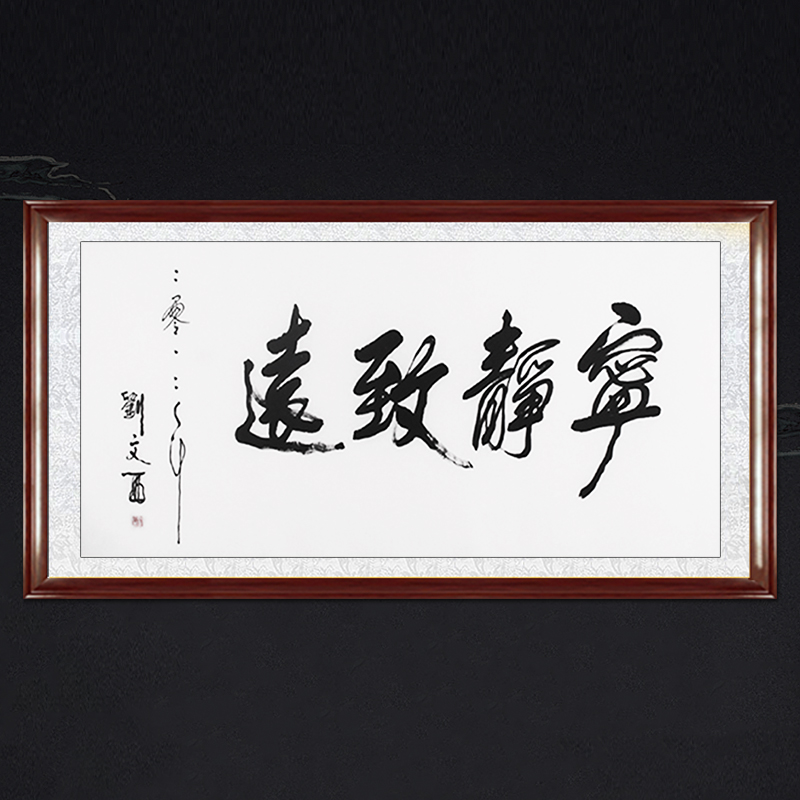 寧靜致遠
二零一二年
劉文西